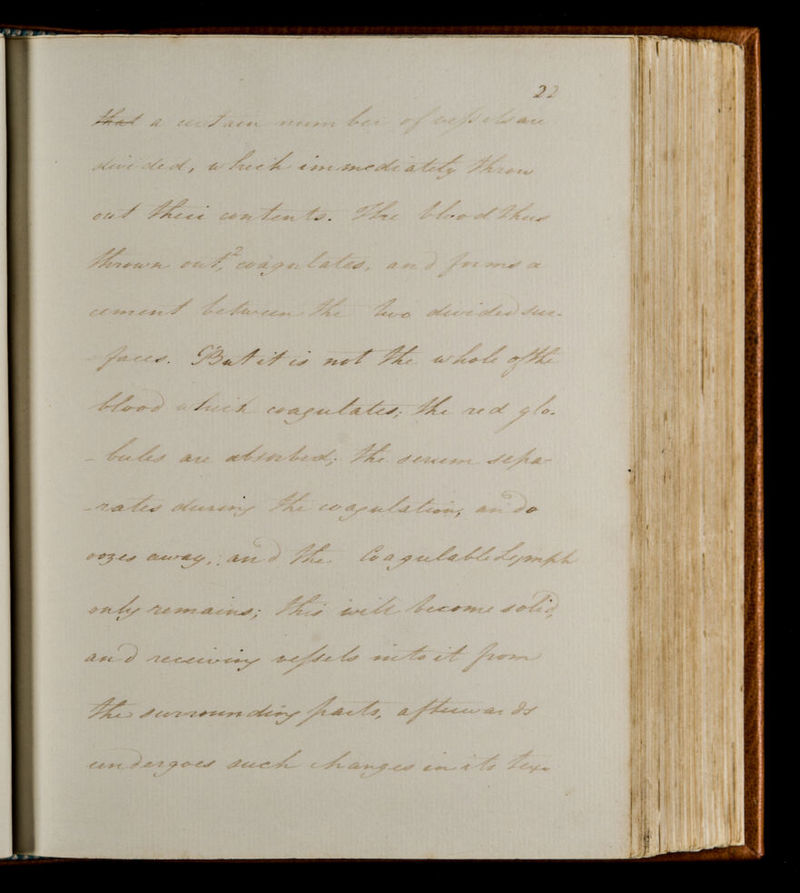 22
that a certain number of vessels are
divided, which immediately throw
out their contents. The blood thus
thrown out, coagulates, and forms a
cement between the two divided sur-
-faces. But it is not the whole of the
blood which coagulates; the red glo-
-bules are absorbed; the serum sepa-
-rates during the coagulation, and
oozes away, and the Coagulable Lymph
only remains; this will become solid,
and receiving vessels into it from
the surrounding parts, afterwards
undergoes such changes in its tex-